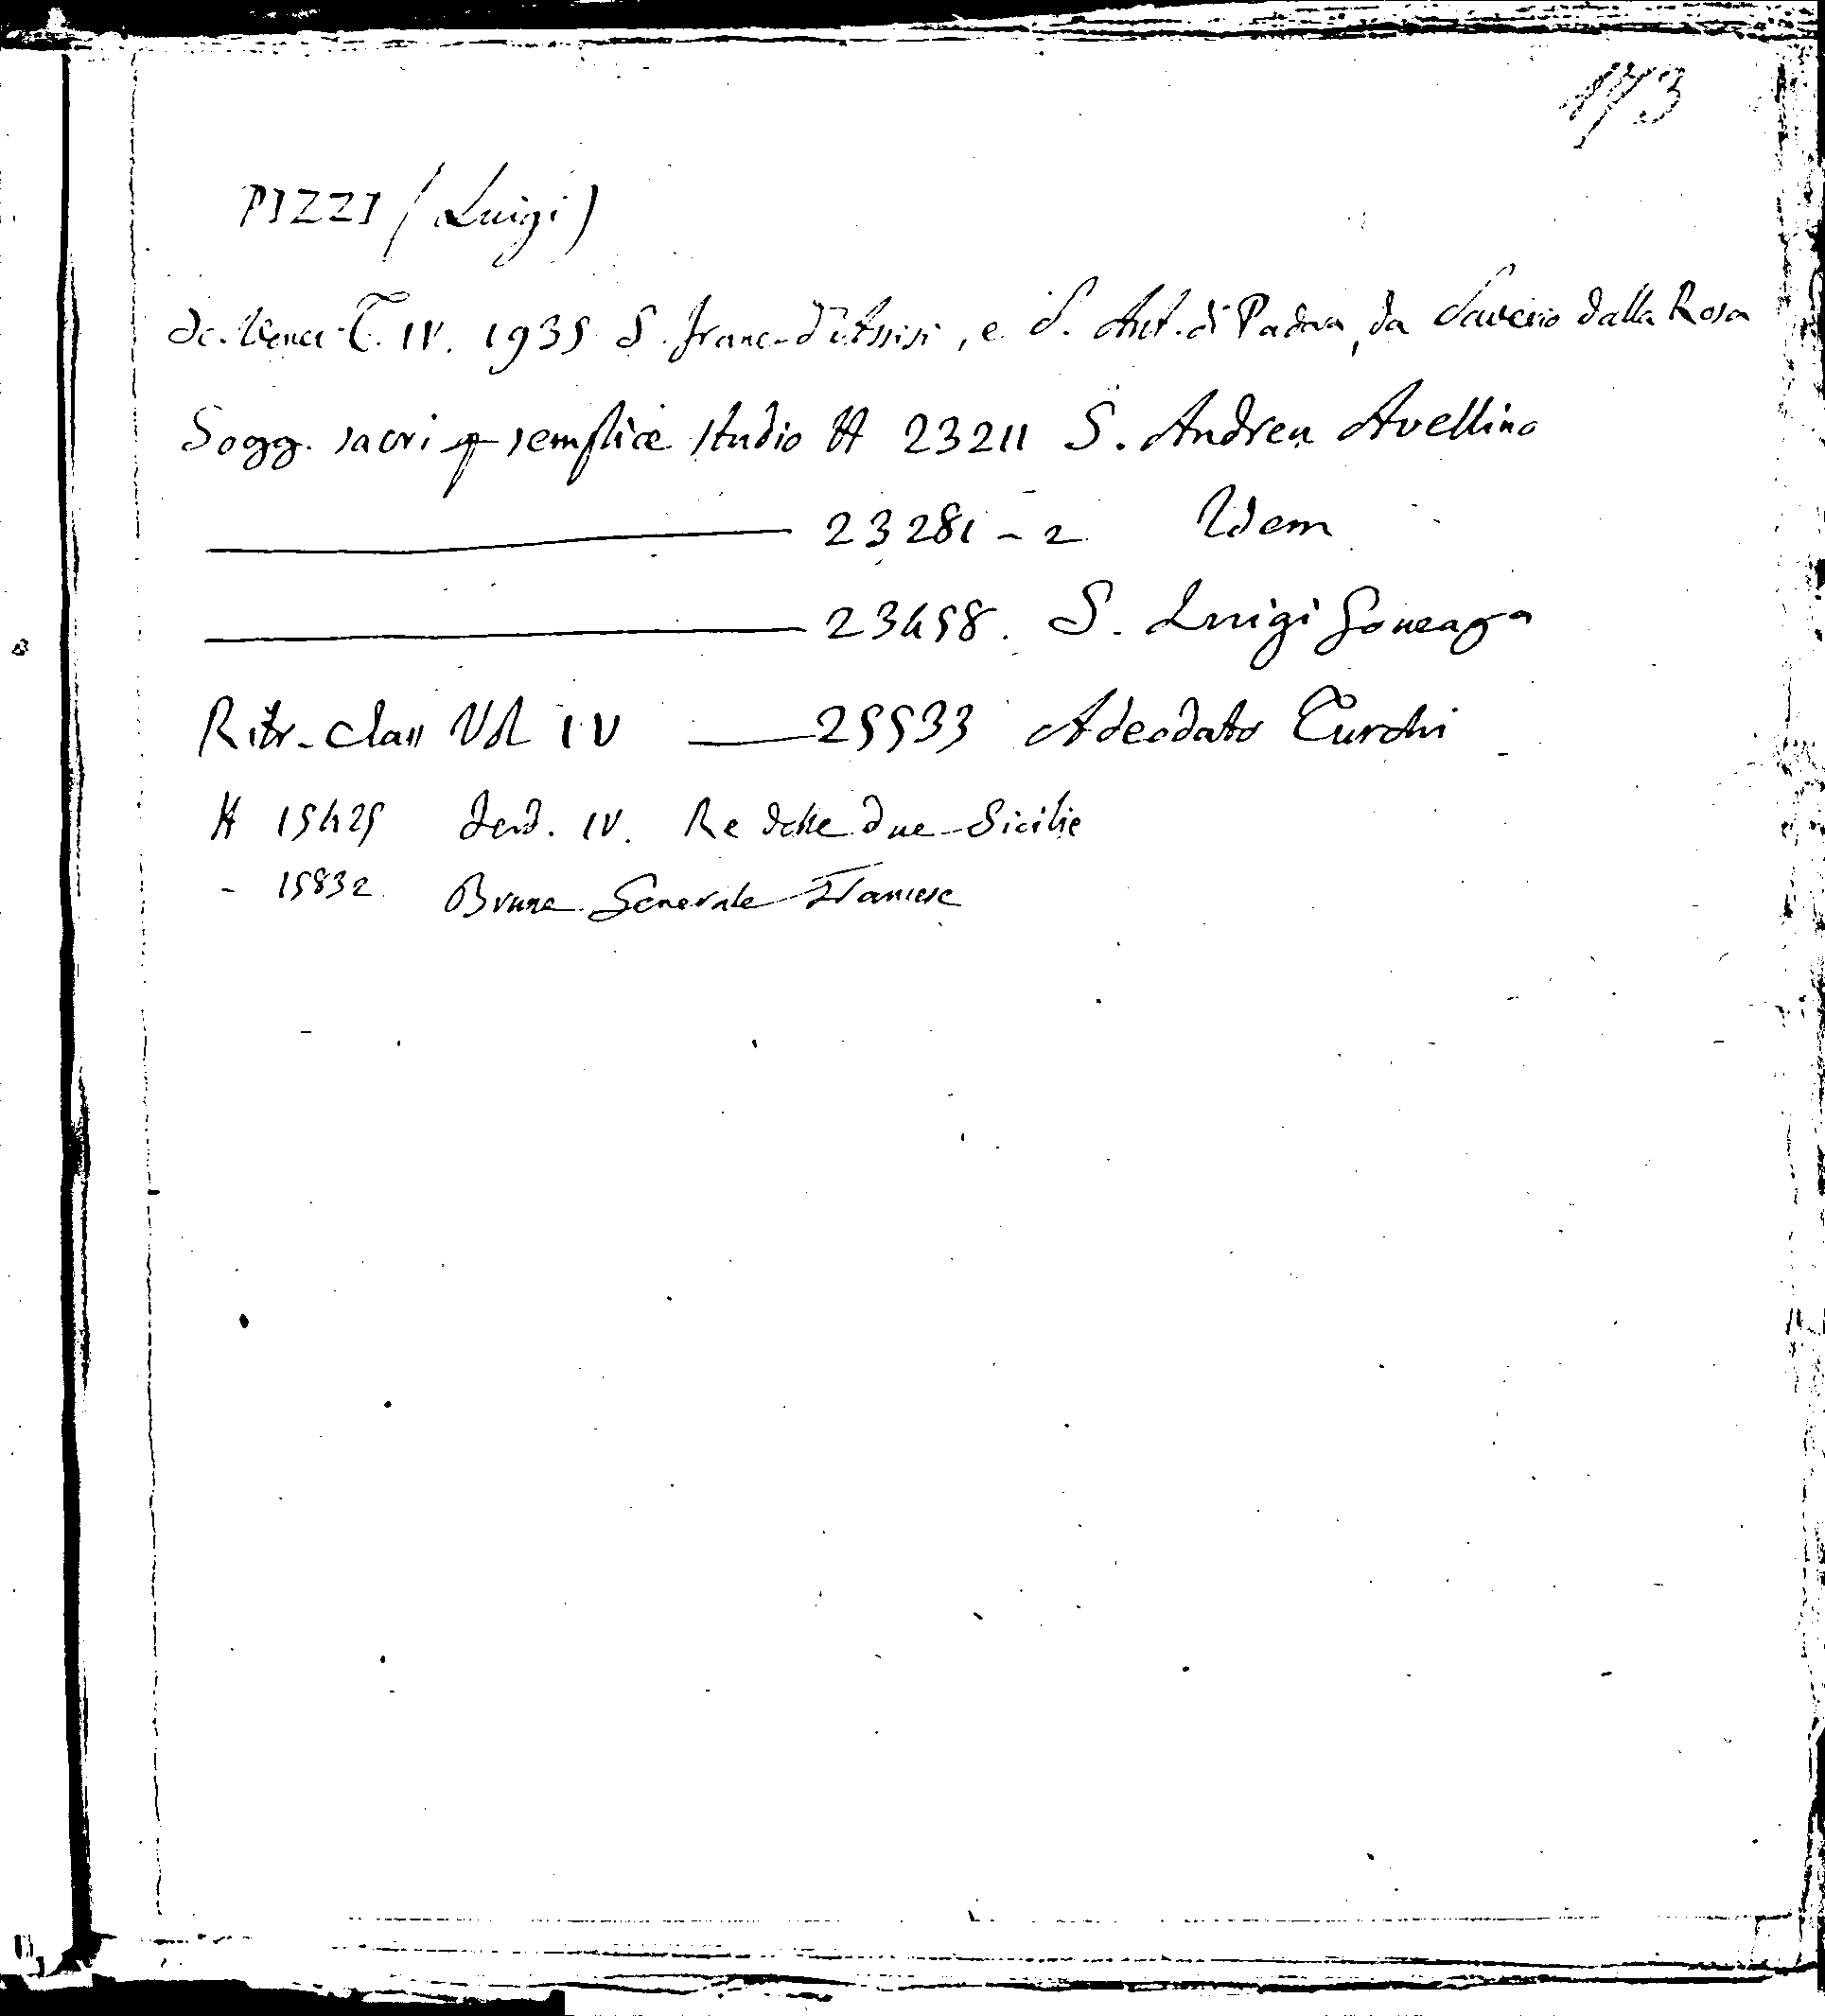 173
PIZZI (Luigi)
Sc. Venez. T. IV. 1935 S. Franc. d'Assisi, e S. Ant. di Padova, da Saverio dalla Rosa
Sogg. sacri p semplice studio H 23211 S. Andrea Avellino
23281-2 Idem
23458. S. Luigi Gonzaga
Ritr. Class Vol IV 25533 Adeodato Turchi
H 15425 Ferd. IV. Re delle due Sicilie
- 15832 Brune Generale Francese